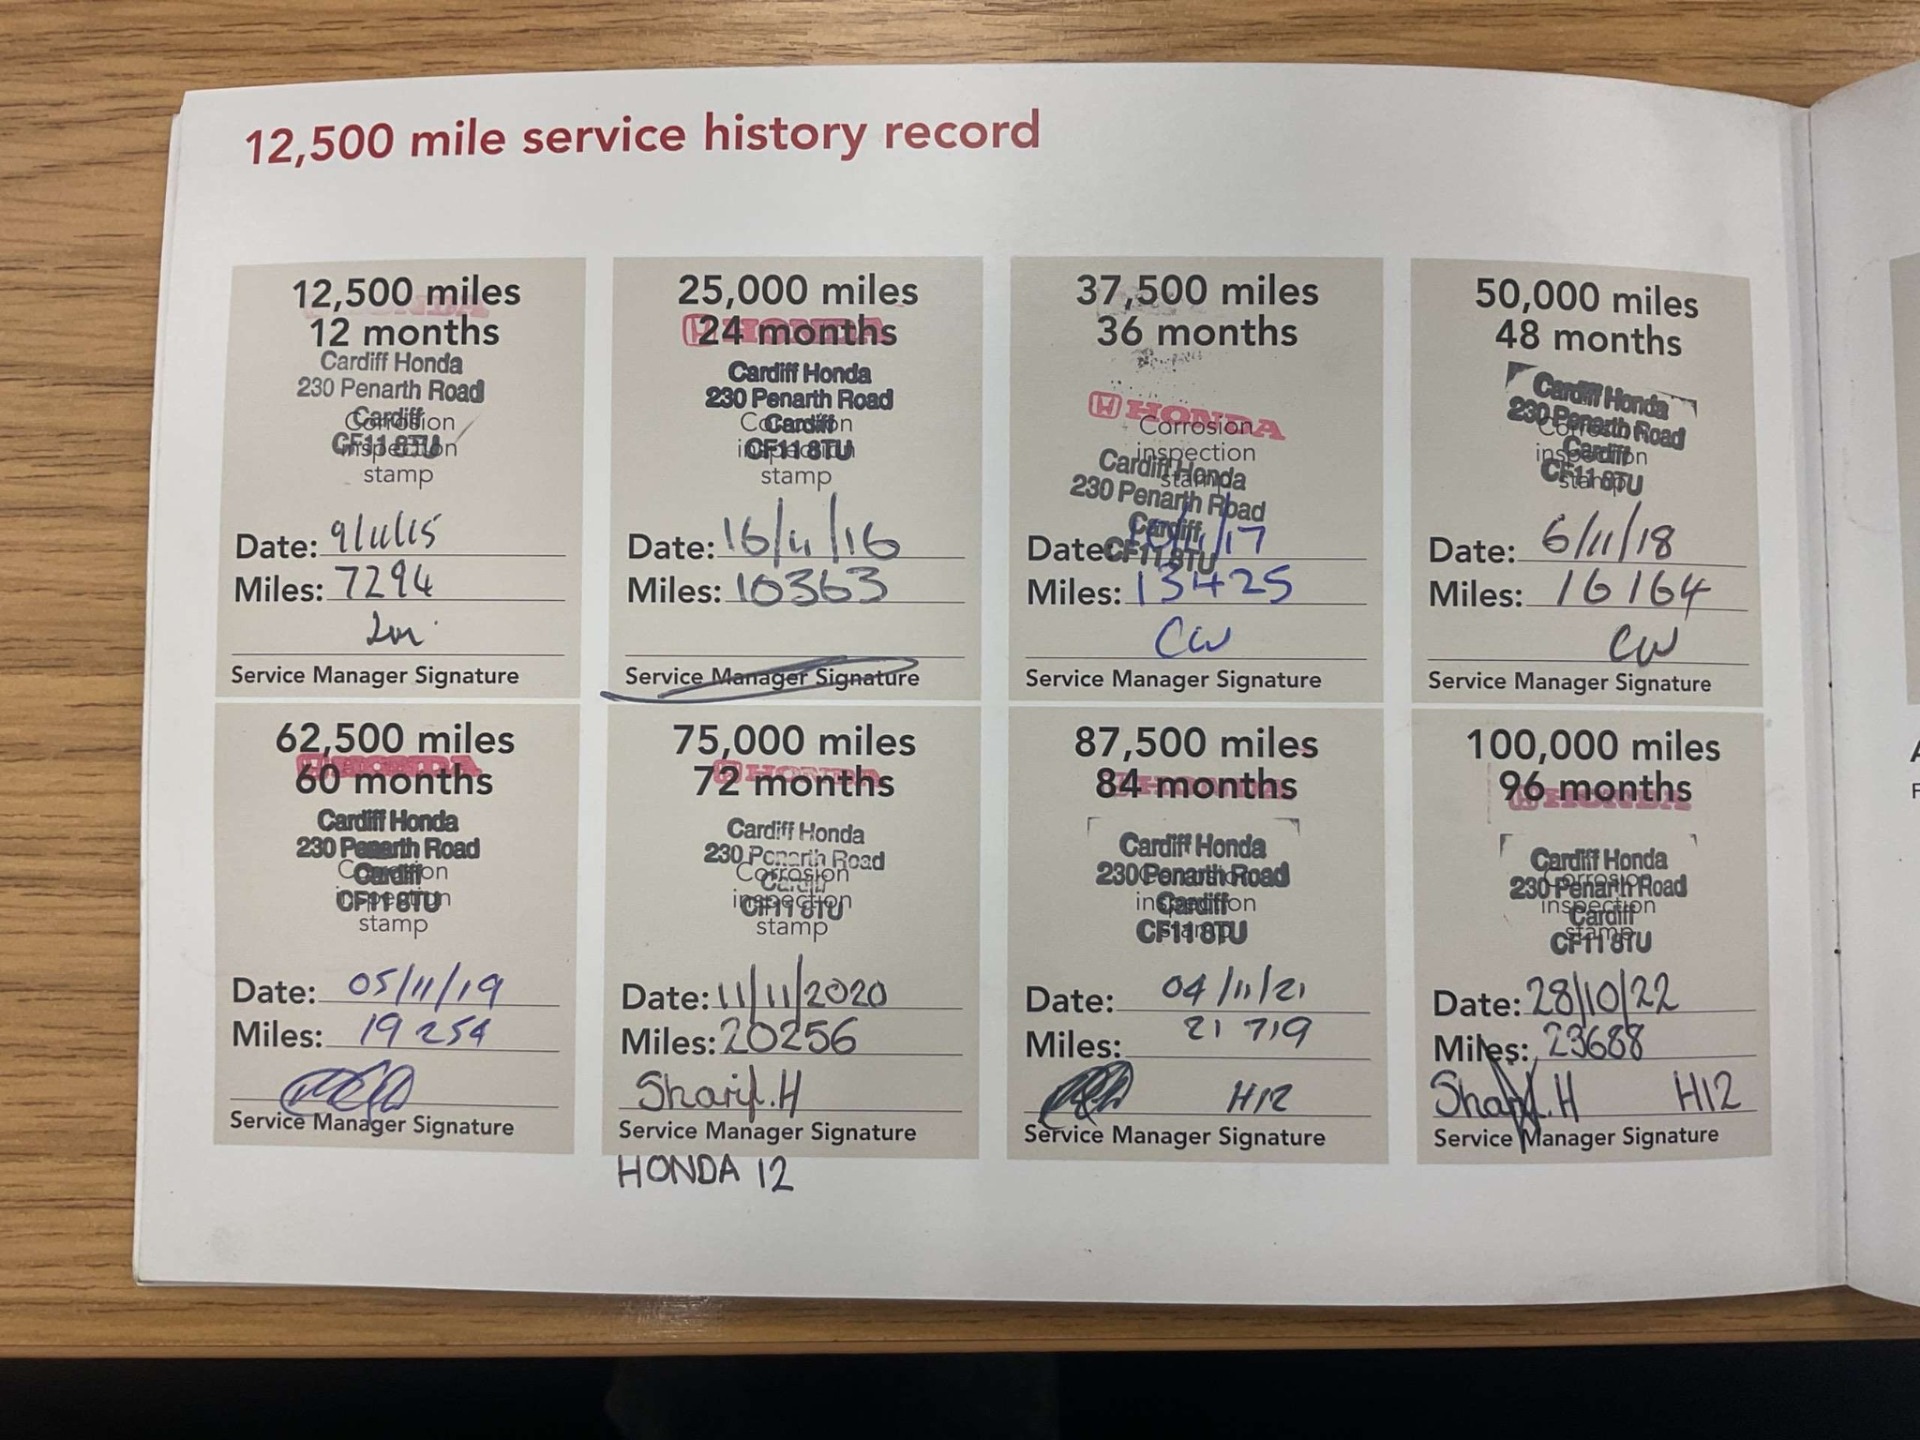 12,500 mile service history record
12,500 miles
HONDA
12 months
Cardiff Honda
230 Penarth Road
Cardiff
Corrosion
CF11 8TU
inspection
stamp
Date: 9/11/15
Miles: 7294
Service Manager Signature
25,000 miles
HONDA
24 months
Cardiff Honda
230 Penarth Road
Cardiff
Corrosion
CF11 8TU
inspection
stamp
Date: 16/11/16
Miles: 10363
Service Manager Signature
37,500 miles
36 months
HONDA
Corrosion
inspection
stamp
Cardiff Honda
230 Penarth Road
Cardiff
CF11 8TU
Date: /11/17
Miles: 13425
CW
Service Manager Signature
50,000 miles
48 months
Cardiff Honda
230 Penarth Road
Corrosion
Cardiff
inspection
CF11 8TU
stamp
Date: 6/11/18
Miles: 16164
CW
Service Manager Signature
62,500 miles
HONDA
60 months
Cardiff Honda
230 Penarth Road
Cardiff
Corrosion
CF11 8TU
inspection
stamp
Date: 05/11/19
Miles: 19254
Service Manager Signature
75,000 miles
HONDA
72 months
Cardiff Honda
230 Penarth Road
Corrosion
Cardiff
inspection
CF11 8TU
stamp
Date: 11/11/2020
Miles: 20256
Sharif.H
Service Manager Signature
HONDA 12
87,500 miles
HONDA
84 months
Cardiff Honda
230 Penarth Road
Corrosion
Cardiff
inspection
CF11 8TU
stamp
Date: 04/11/21
Miles: 21719
H12
Service Manager Signature
100,000 miles
96 months
HONDA
Cardiff Honda
230 Penarth Road
Corrosion
inspection
Cardiff
stamp
CF11 8TU
Date: 28/10/22
Miles: 23688
Sharif.H H12
Service Manager Signature